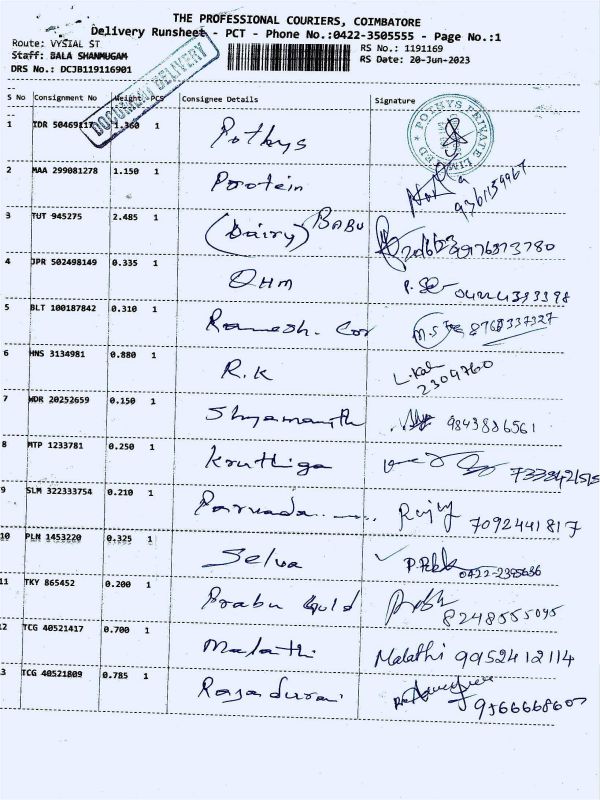 THE PROFESSIONAL COURIERS, COIMBATORE
Delivery Runsheet - PCT - Phone No.:0422-3505555 - Page No.:1
Route: VYSIAL ST
Staff: BALA SHANMUGAM
DRS No.: DCJB119116901
RS No.: 1191169
RS Date: 20-Jun-2023
DOCUMENT DELIVERY
S No Consignment No Weight PCS Consignee Details Signature
1 IDR 1.360 1 Pothys
POTHYS PRIVATE LIMITED
2 MAA 299081278 1.150 1 Protein
3 TUT 945275 2.485 1 (Dairy) BABU
4 JPR 502498149 0.335 1 OHM
5 BLT 100187842 0.310 1 Ramesh. Cor 8768337327
6 HNS 3134981 0.880 1 R.K
2304760
7 WDR 20252659 0.150 1 9843886561
8 MTP 1233781 0.250 1 Kruthiga
9 SLM 322333754 0.210 1 7092441817
10 PLN 1453220 0.325 1 Selva
11 TKY 865452 0.200 1 Prabu Guld
8248555095
12 TCG 40521417 0.700 1 Malathi Malathi 9952412114
3 TCG 40521809 0.785 1 Rajadurai